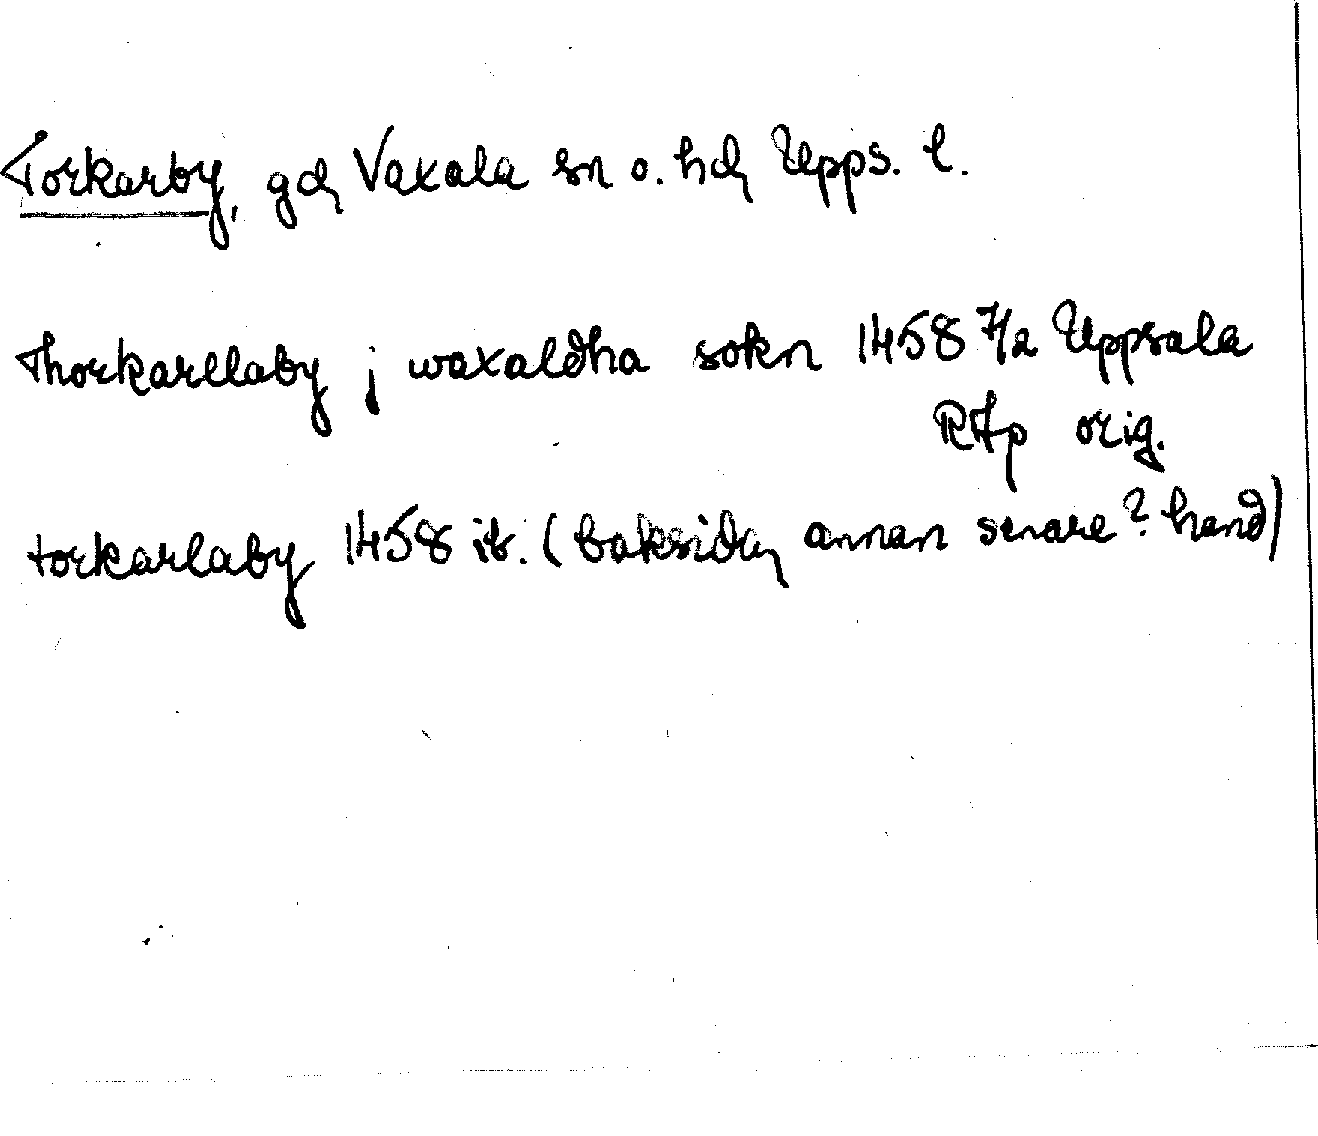 Torkarby, gd, Vaxala sn o. hd, Upps. l.
Thorkarllaby j waxaldha sokn 1458 7/2 Uppsala
RAp orig.
torkarlaby 1458 ib. (baksida, annan senare? hand)